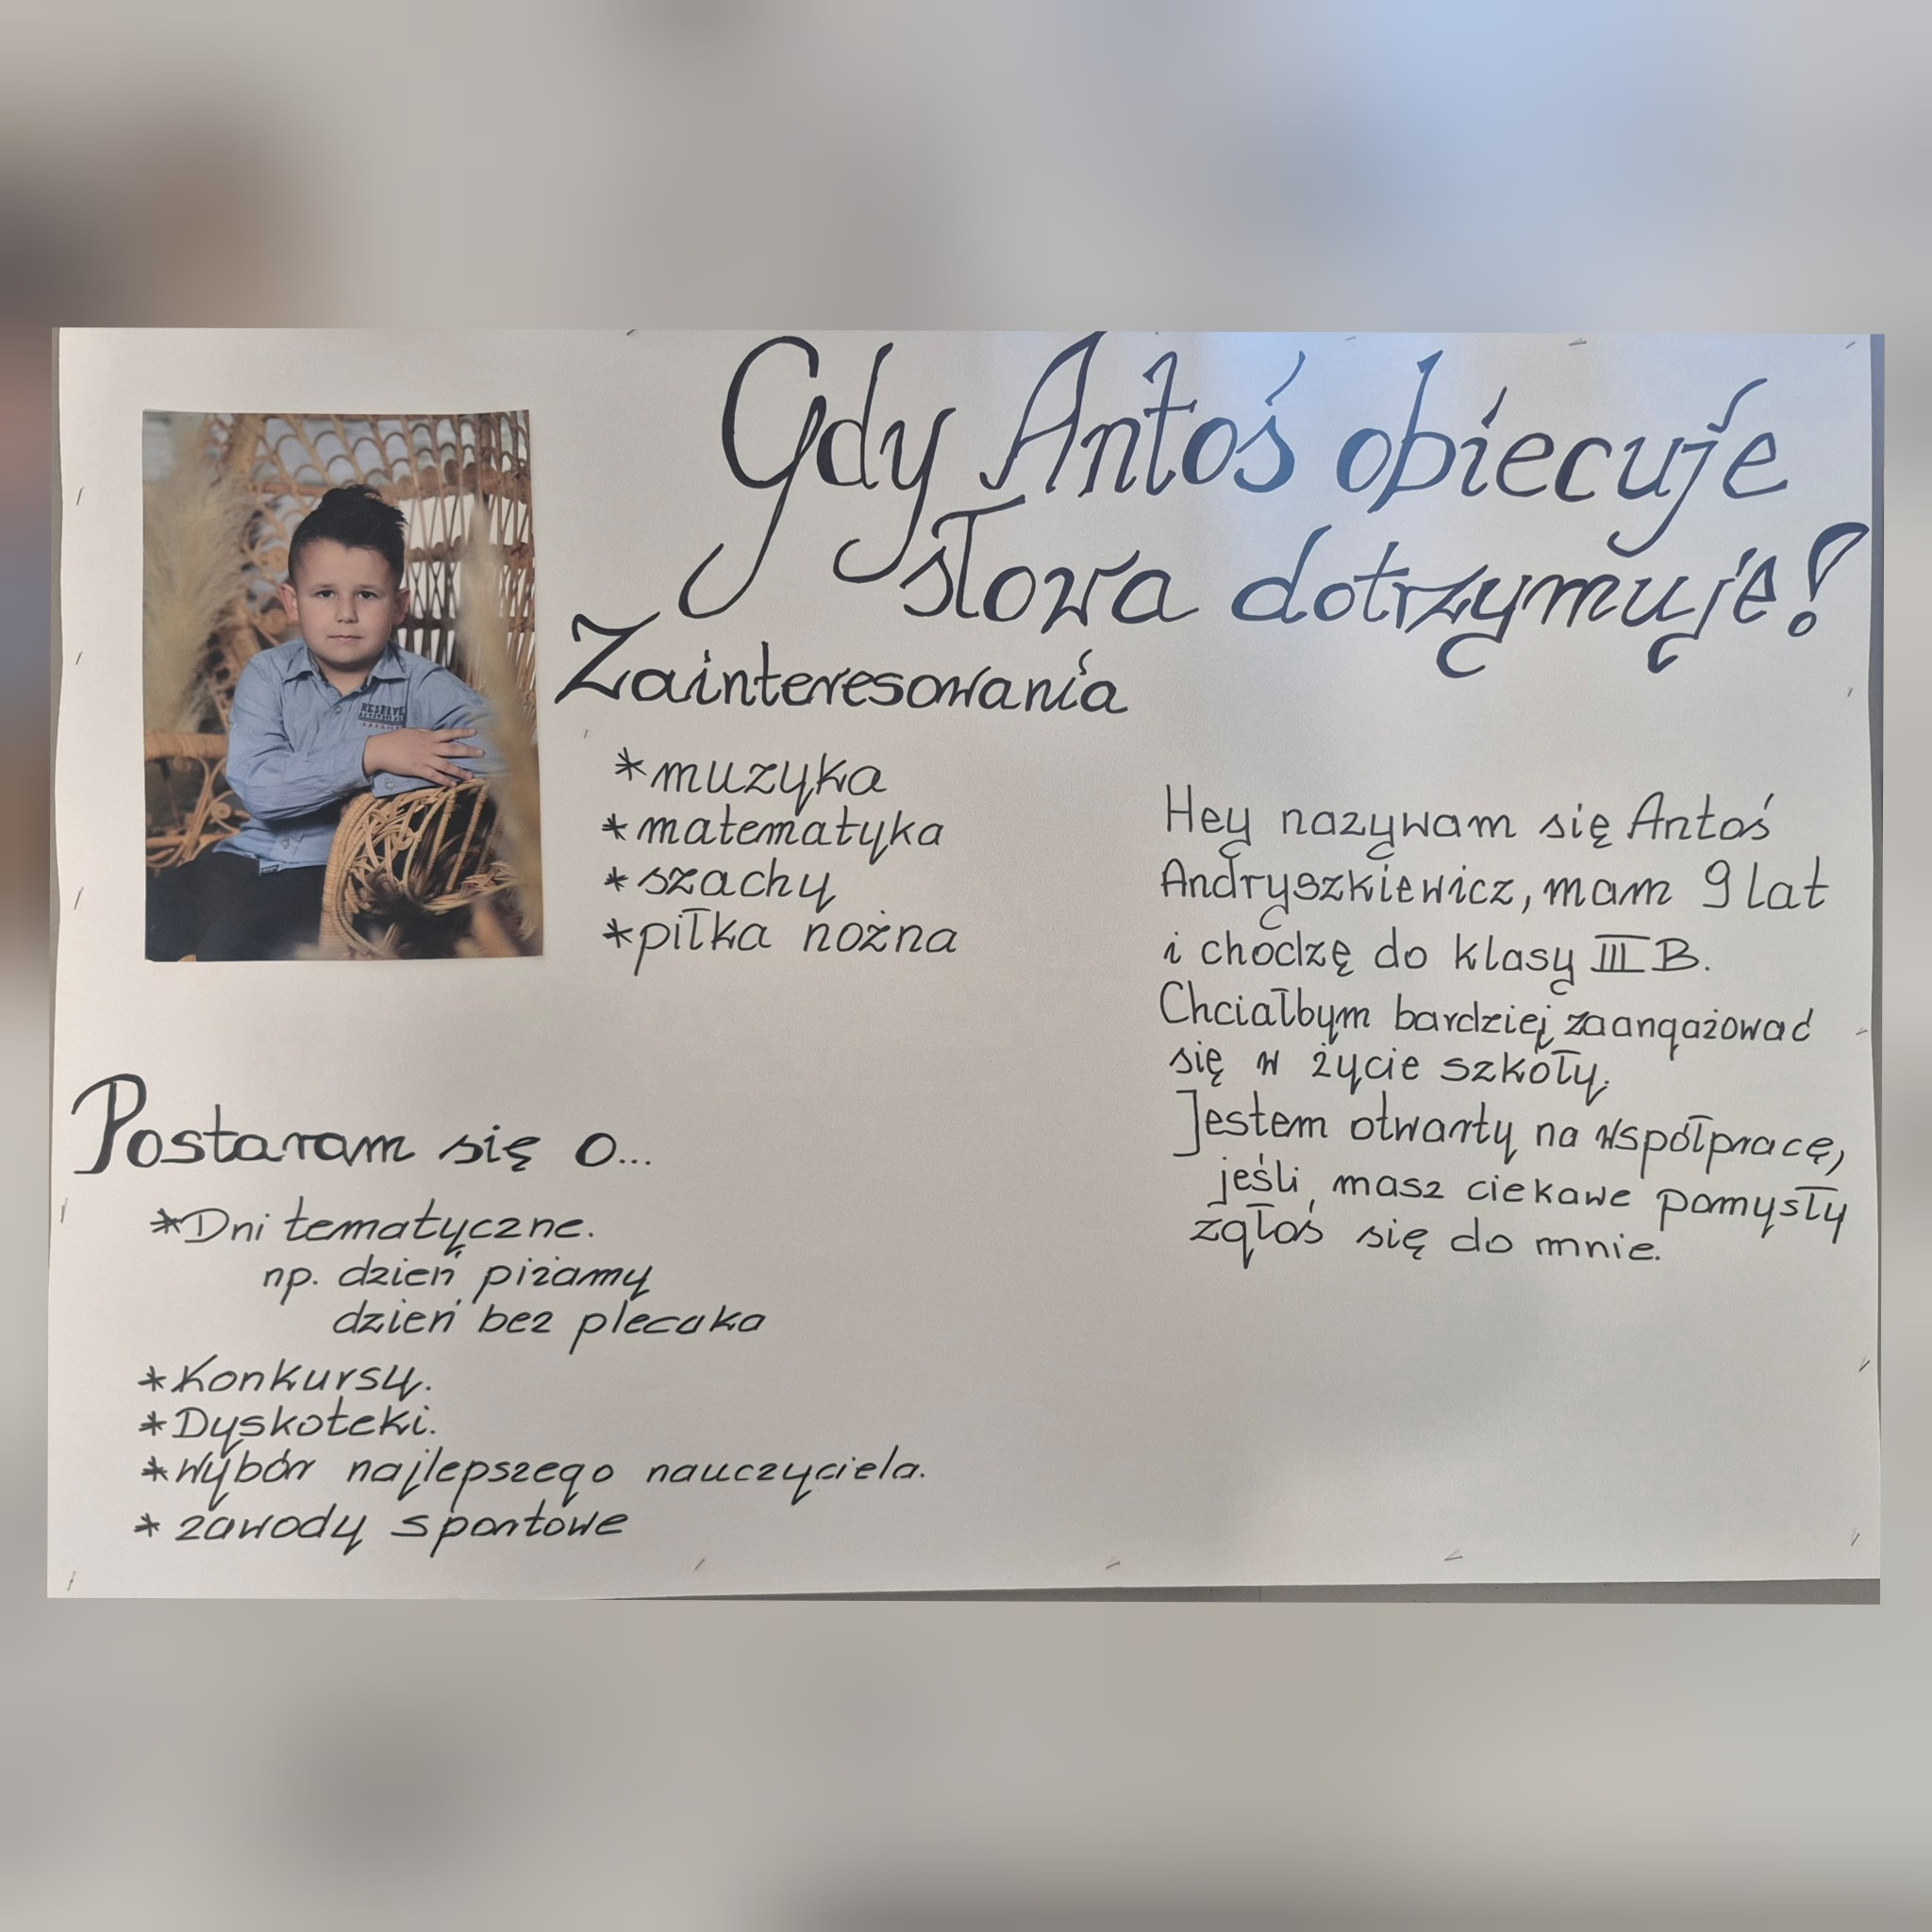 Gdy Antoś obiecuje
słowa dotrzymuje!
Zainteresowania
*muzyka
*matematyka
*szachy
*piłka nożna
Hey nazywam się Antoś
Andryszkiewicz, mam 9 lat
i chodzę do klasy III B.
Chciałbym bardziej zaangażować
się w życie szkoły.
Jestem otwarty na współpracę,
jeśli, masz ciekawe pomysły
zgłoś się do mnie.
Postaram się o...
*Dni tematyczne.
np. dzień piżamy
dzień bez plecaka
*Konkursy.
*Dyskoteki.
*Wybór najlepszego nauczyciela.
* zawody sportowe